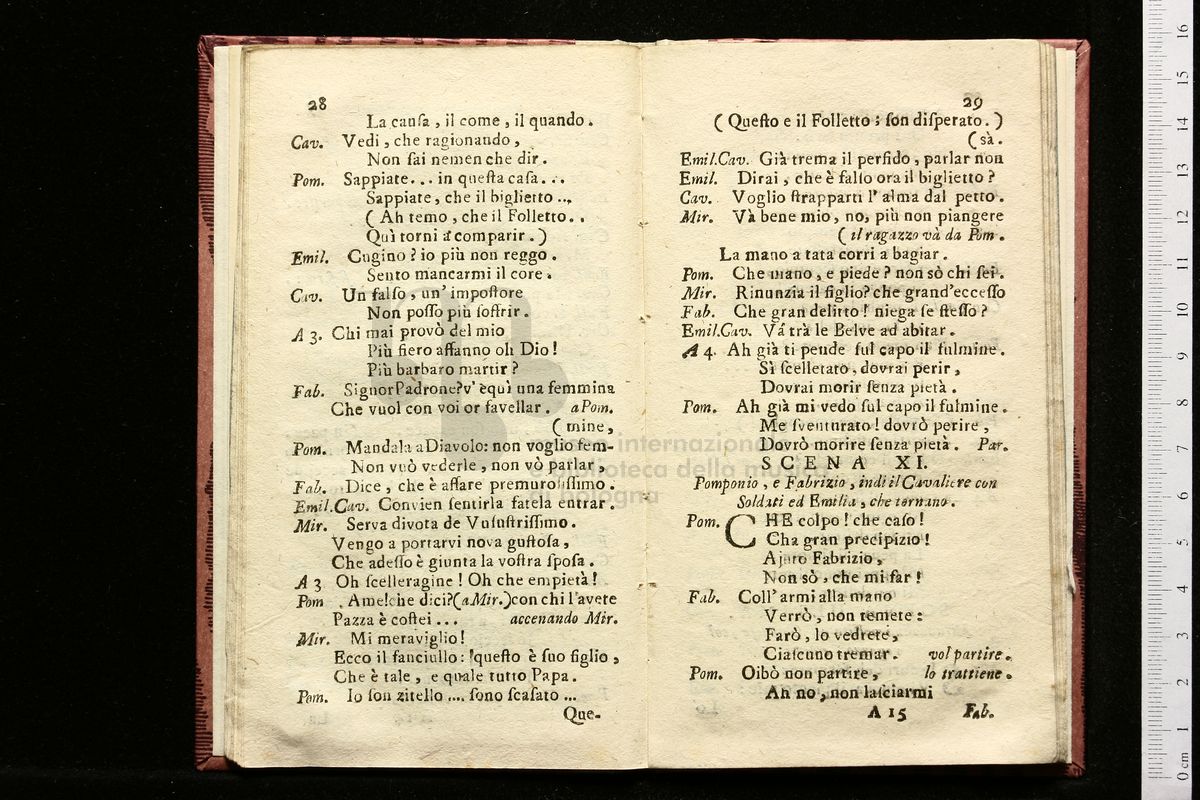 28
La cauſa , il come , il quando .
Cav. Vedi , che ragionando ,
Non ſai nemen che dir .
Pom. Sappiate . . . in queſta caſa . . .
Sappiate , che il biglietto . . .
( Ah temo , che il Folletto . .
Quì torni a comparir . )
Emil. Cugino ? io più non reggo .
Sento mancarmi il core .
Cav. Un falſo , un' impoſtore
Non poſſo più ſoffrir .
A 3. Chi mai provò del mio
Più fiero affanno oh Dio !
Più barbaro martir ?
Fab. Signor Padrone? v' èquì una femmina
Che vuol con voi or favellar . a Pom.
( mine ,
Pom. Mandala a Diavolo: non voglio fem-
Non vuò vederle , non vò parlar ,
Fab. Dice , che è affare premuroſiſſimo .
Emil. Cav. Convien ſentirla fatela entrar .
Mir. Serva divota de Vuſuſtriſſimo .
Vengo a portarvi nova guſtoſa ,
Che adeſſo è giunta la voſtra ſpoſa .
A 3 Oh ſcelleragine ! Oh che empietà !
Pom . Ame!che dici?(a Mir.)con chi l'avete
Pazza è coſtei . . . accenando Mir.
Mir. Mi meraviglio !
Ecco il fanciullo: queſto è ſuo figlio ,
Che è tale , e quale tutto Papa .
Pom. Io ſon zitello .... ſono ſcaſato ...
Que-
29
( Queſto e il Folletto : ſon diſperato . )
( sà .
Emil. Cav. Già trema il perfido , parlar non
Emil. Dirai , che è falſo ora il biglietto ?
Cav. Voglio ſtrapparti l' alma dal petto .
Mir. Và bene mio , no, più non piangere
( il ragazzo và da Pom .
La mano a tata corri a bagiar .
Pom. Che mano , e piede ? non sò chi ſei .
Mir. Rinunzia il figlio? che grand'ecceſſo
Fab. Che gran delitto ! niega ſe ſteſſo ?
Emil. Cav. Vá trà le Belve ad abitar .
A 4. Ah già ti pende ſul capo il fulmine .
Sì ſcelletato , dovrai perir ,
Dovrai morir ſenza pietà .
Pom. Ah già mi vedo ſul capo il fulmine .
Me ſventurato ! dovrò perire ,
Dovrò morire ſenza pietà . Par.
SCENA XI.
Pomponio , e Fabrizio , indi il Cavaliere con
Soldati ed Emilia , che tornano .
Pom. CHE colpo ! che caſo !
Cha gran precipizio !
Ajuto Fabrizio ,
Non sò , che mi far !
Fab. Coll' armi alla mano
Verrò , non temete :
Farò , lo vedrete ,
Ciaſcuno tremar . vol partire .
Pom. Oibò non partire , lo trattiene .
Ah no , non laſciarmi
A 15 Fab.
museo internazionale
e biblioteca della musica
di bologna
16
15
14
13
12
11
10
9
8
7
6
5
4
3
2
1
0 cm